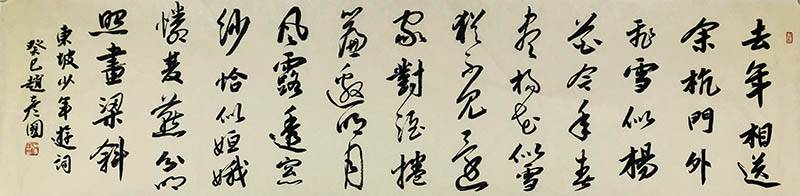 去年相送
余杭門外
飛雪似楊
花今年春
盡楊花似雪
猶不見還
家對酒捲
簾邀明月
風露透窗
紗恰似姮娥
憐雙燕分明
照畫梁斜
東坡少年遊詞
癸巳趙彥國